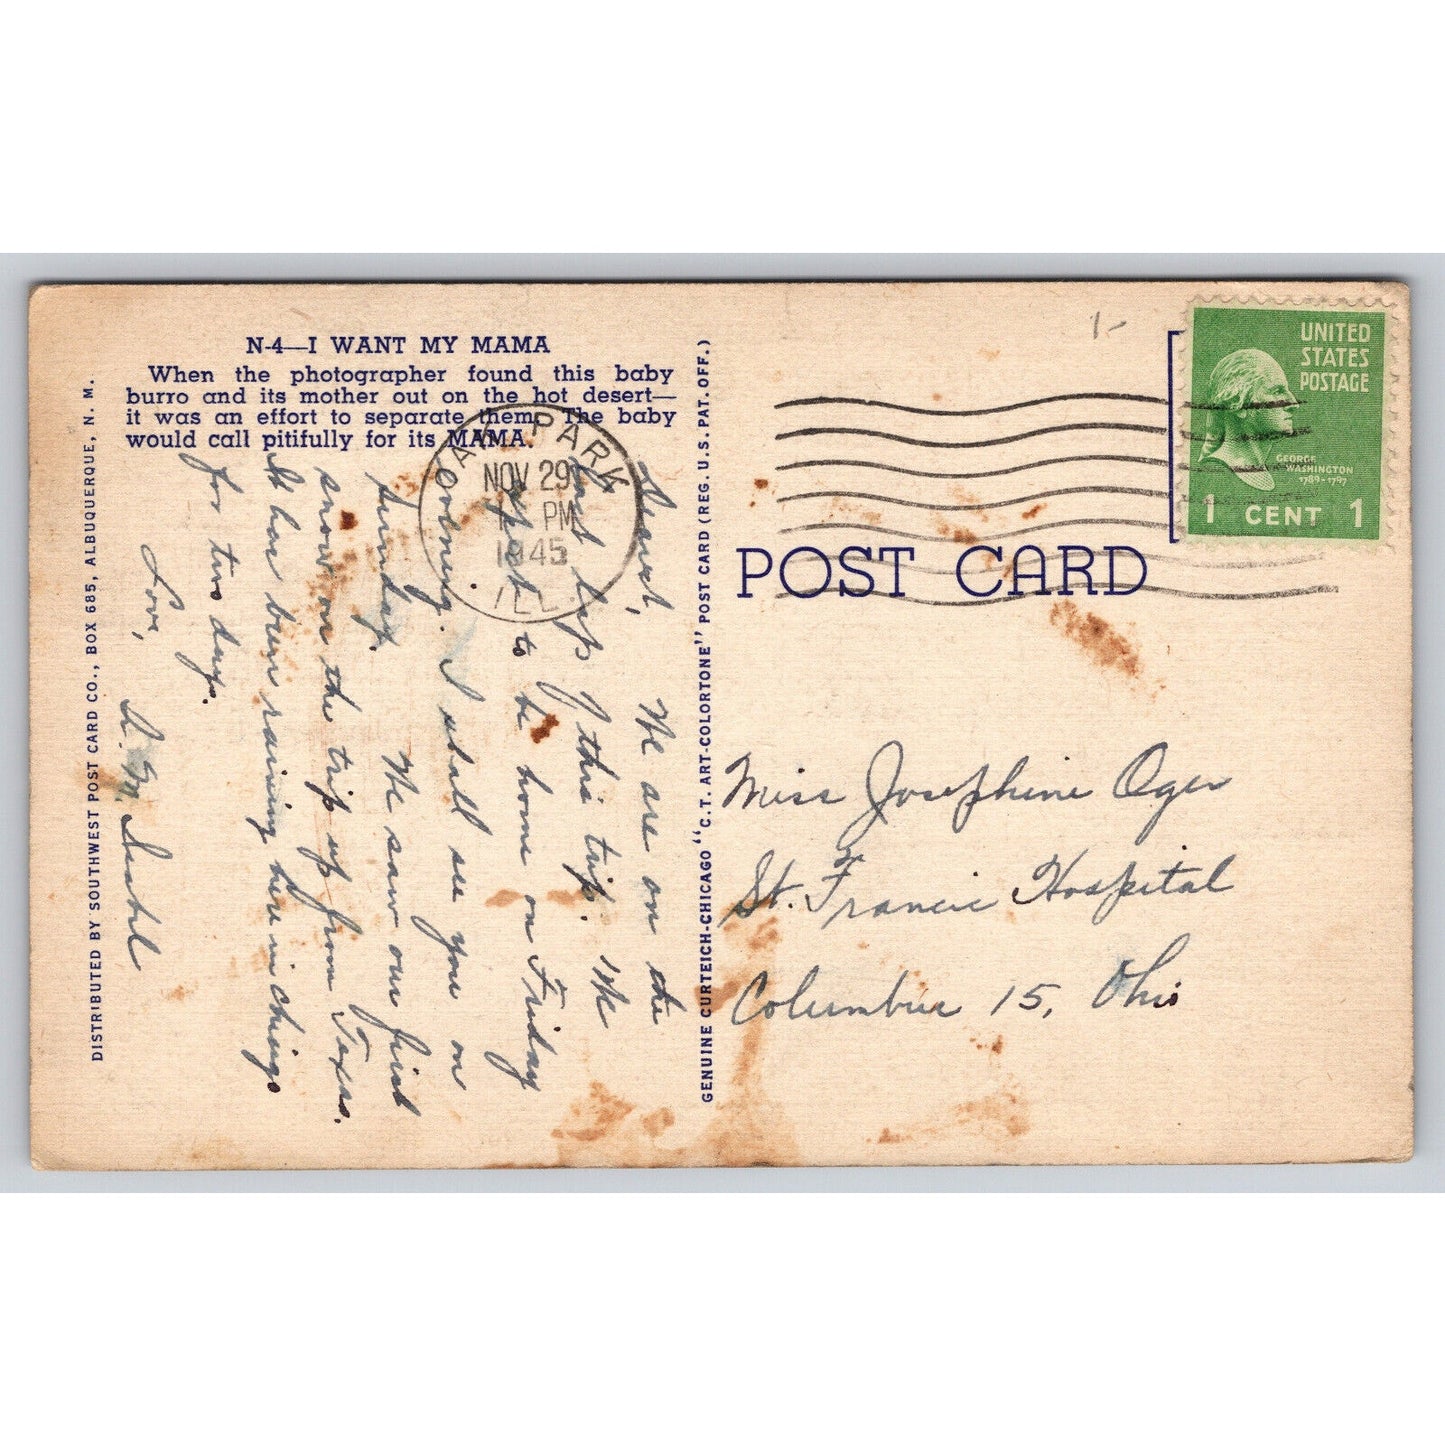 N-4—I WANT MY MAMA
When the photographer found this baby
burro and its mother out on the hot desert—
it was an effort to separate them. The baby
would call pitifully for its MAMA.
DISTRIBUTED BY SOUTHWEST POST CARD CO., BOX 685, ALBUQUERQUE, N. M.
Dearest, We are on the
last lap of this trip. We
expect to be home on Friday
evening. I shall see you on
Sunday. We saw our first
snow on the trip up from Texas.
It has been raining here in Chicago
for two days.
Love,
S. M.
GENUINE CURTEICH-CHICAGO "C.T. ART-COLORTONE" POST CARD (REG. U.S. PAT. OFF.)
OAK PARK
NOV 29
1 PM
1945
ILL.
1-
UNITED
STATES
POSTAGE
GEORGE
WASHINGTON
1789-1797
1 CENT 1
POST CARD
Miss Josephine Oger
St. Francis Hospital
Columbus 15, Ohio